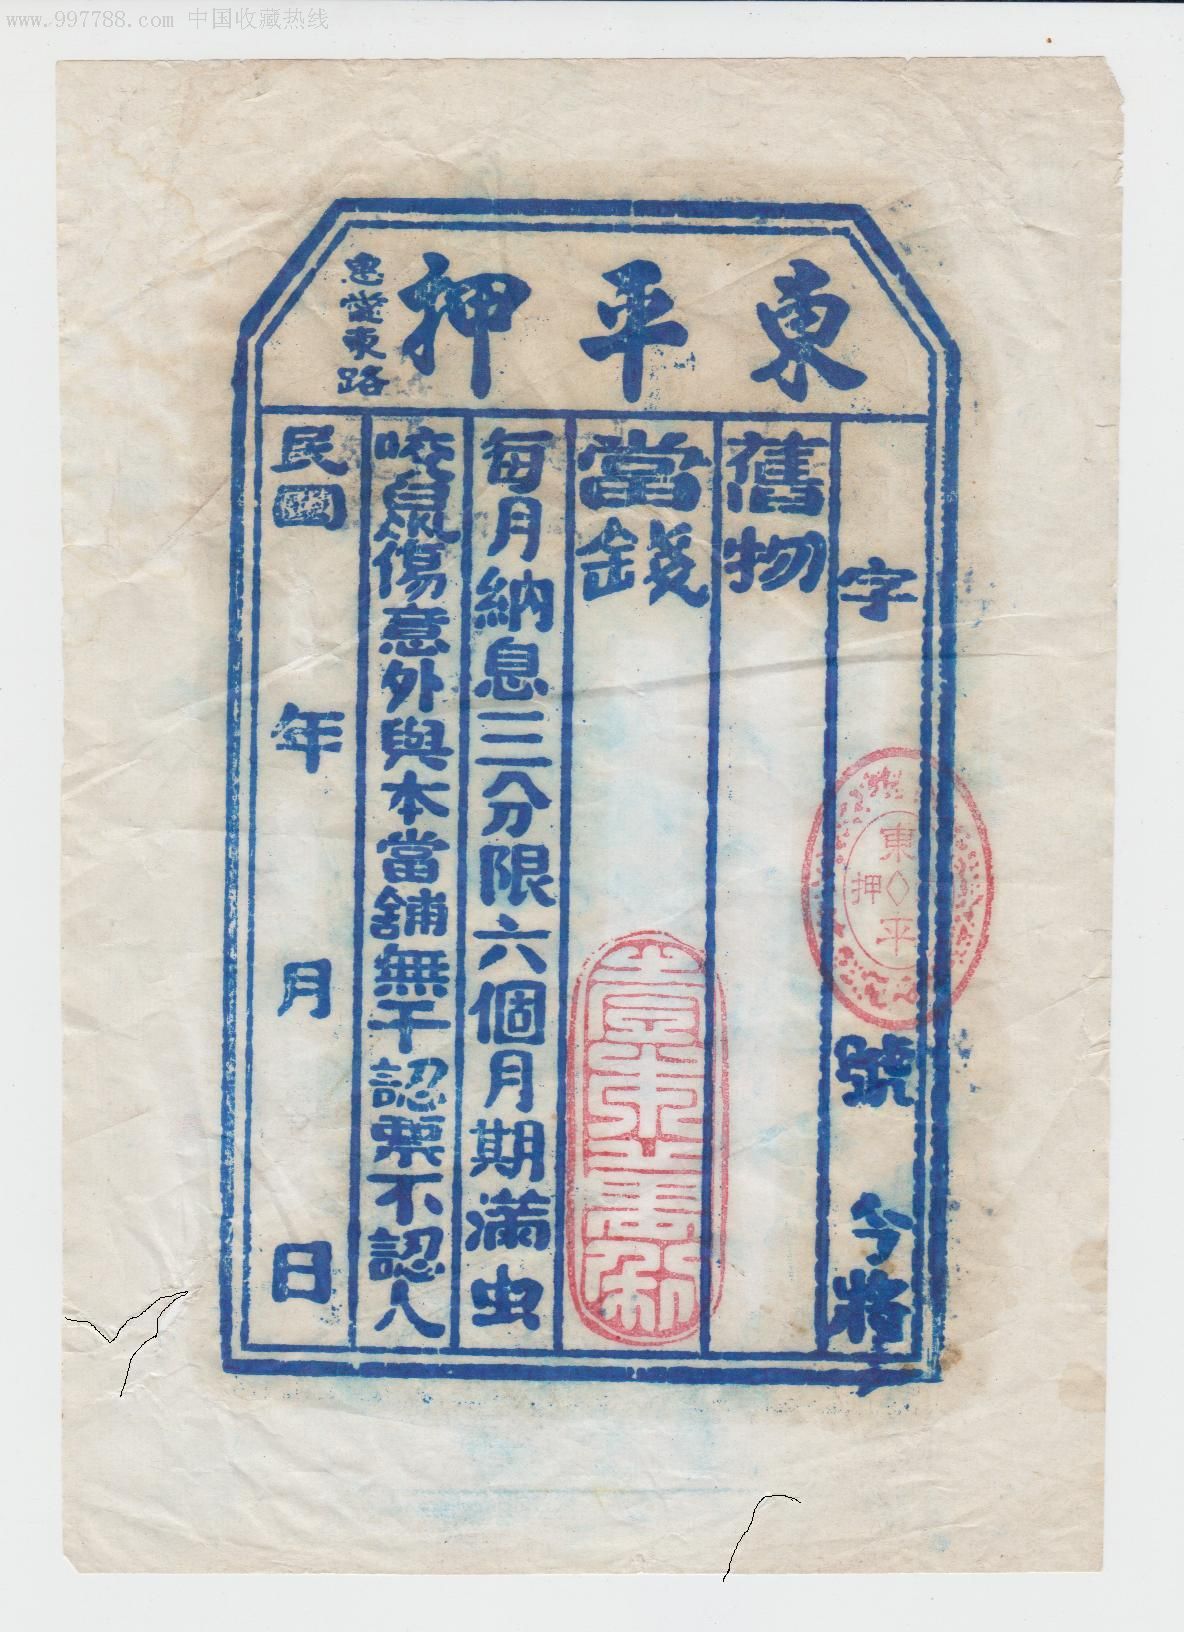 www.997788.com 中国收藏热线
東平押
惠愛東路
字 號 今將
舊物
當錢
每月納息三分限六個月期滿虫
咬鼠傷意外與本當舖無干認票不認人
民國 年 月 日
東平
押